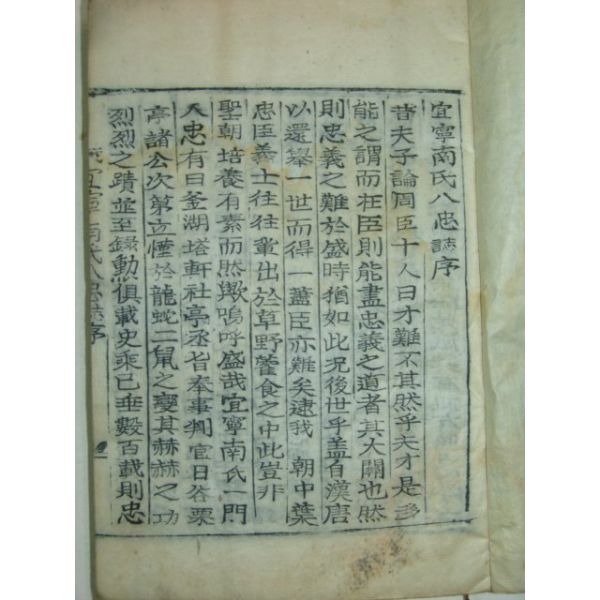 宜寧南氏八忠誌序
昔夫子論周臣十人曰才難不其然乎夫才是多
能之謂而在臣則能盡忠義之道者其大關也然
則忠義之難於盛時猶如此况後世乎盖自漢唐
以還舉一世而得一藎臣亦難矣逮我 朝中葉
忠臣義士往往輩出於草野藿食之中此豈非
聖朝培養有素而然歟嗚呼盛哉宜寧南氏一門
八忠有曰釜湖塔軒社亭丞旨奉事判官日谷栗
亭諸公次第立慬於龍蛇二鼠之變其赫赫之功
烈烈之蹟並至錄勳俱載史乘已垂數百載則忠
宜寧南氏八忠誌序
一